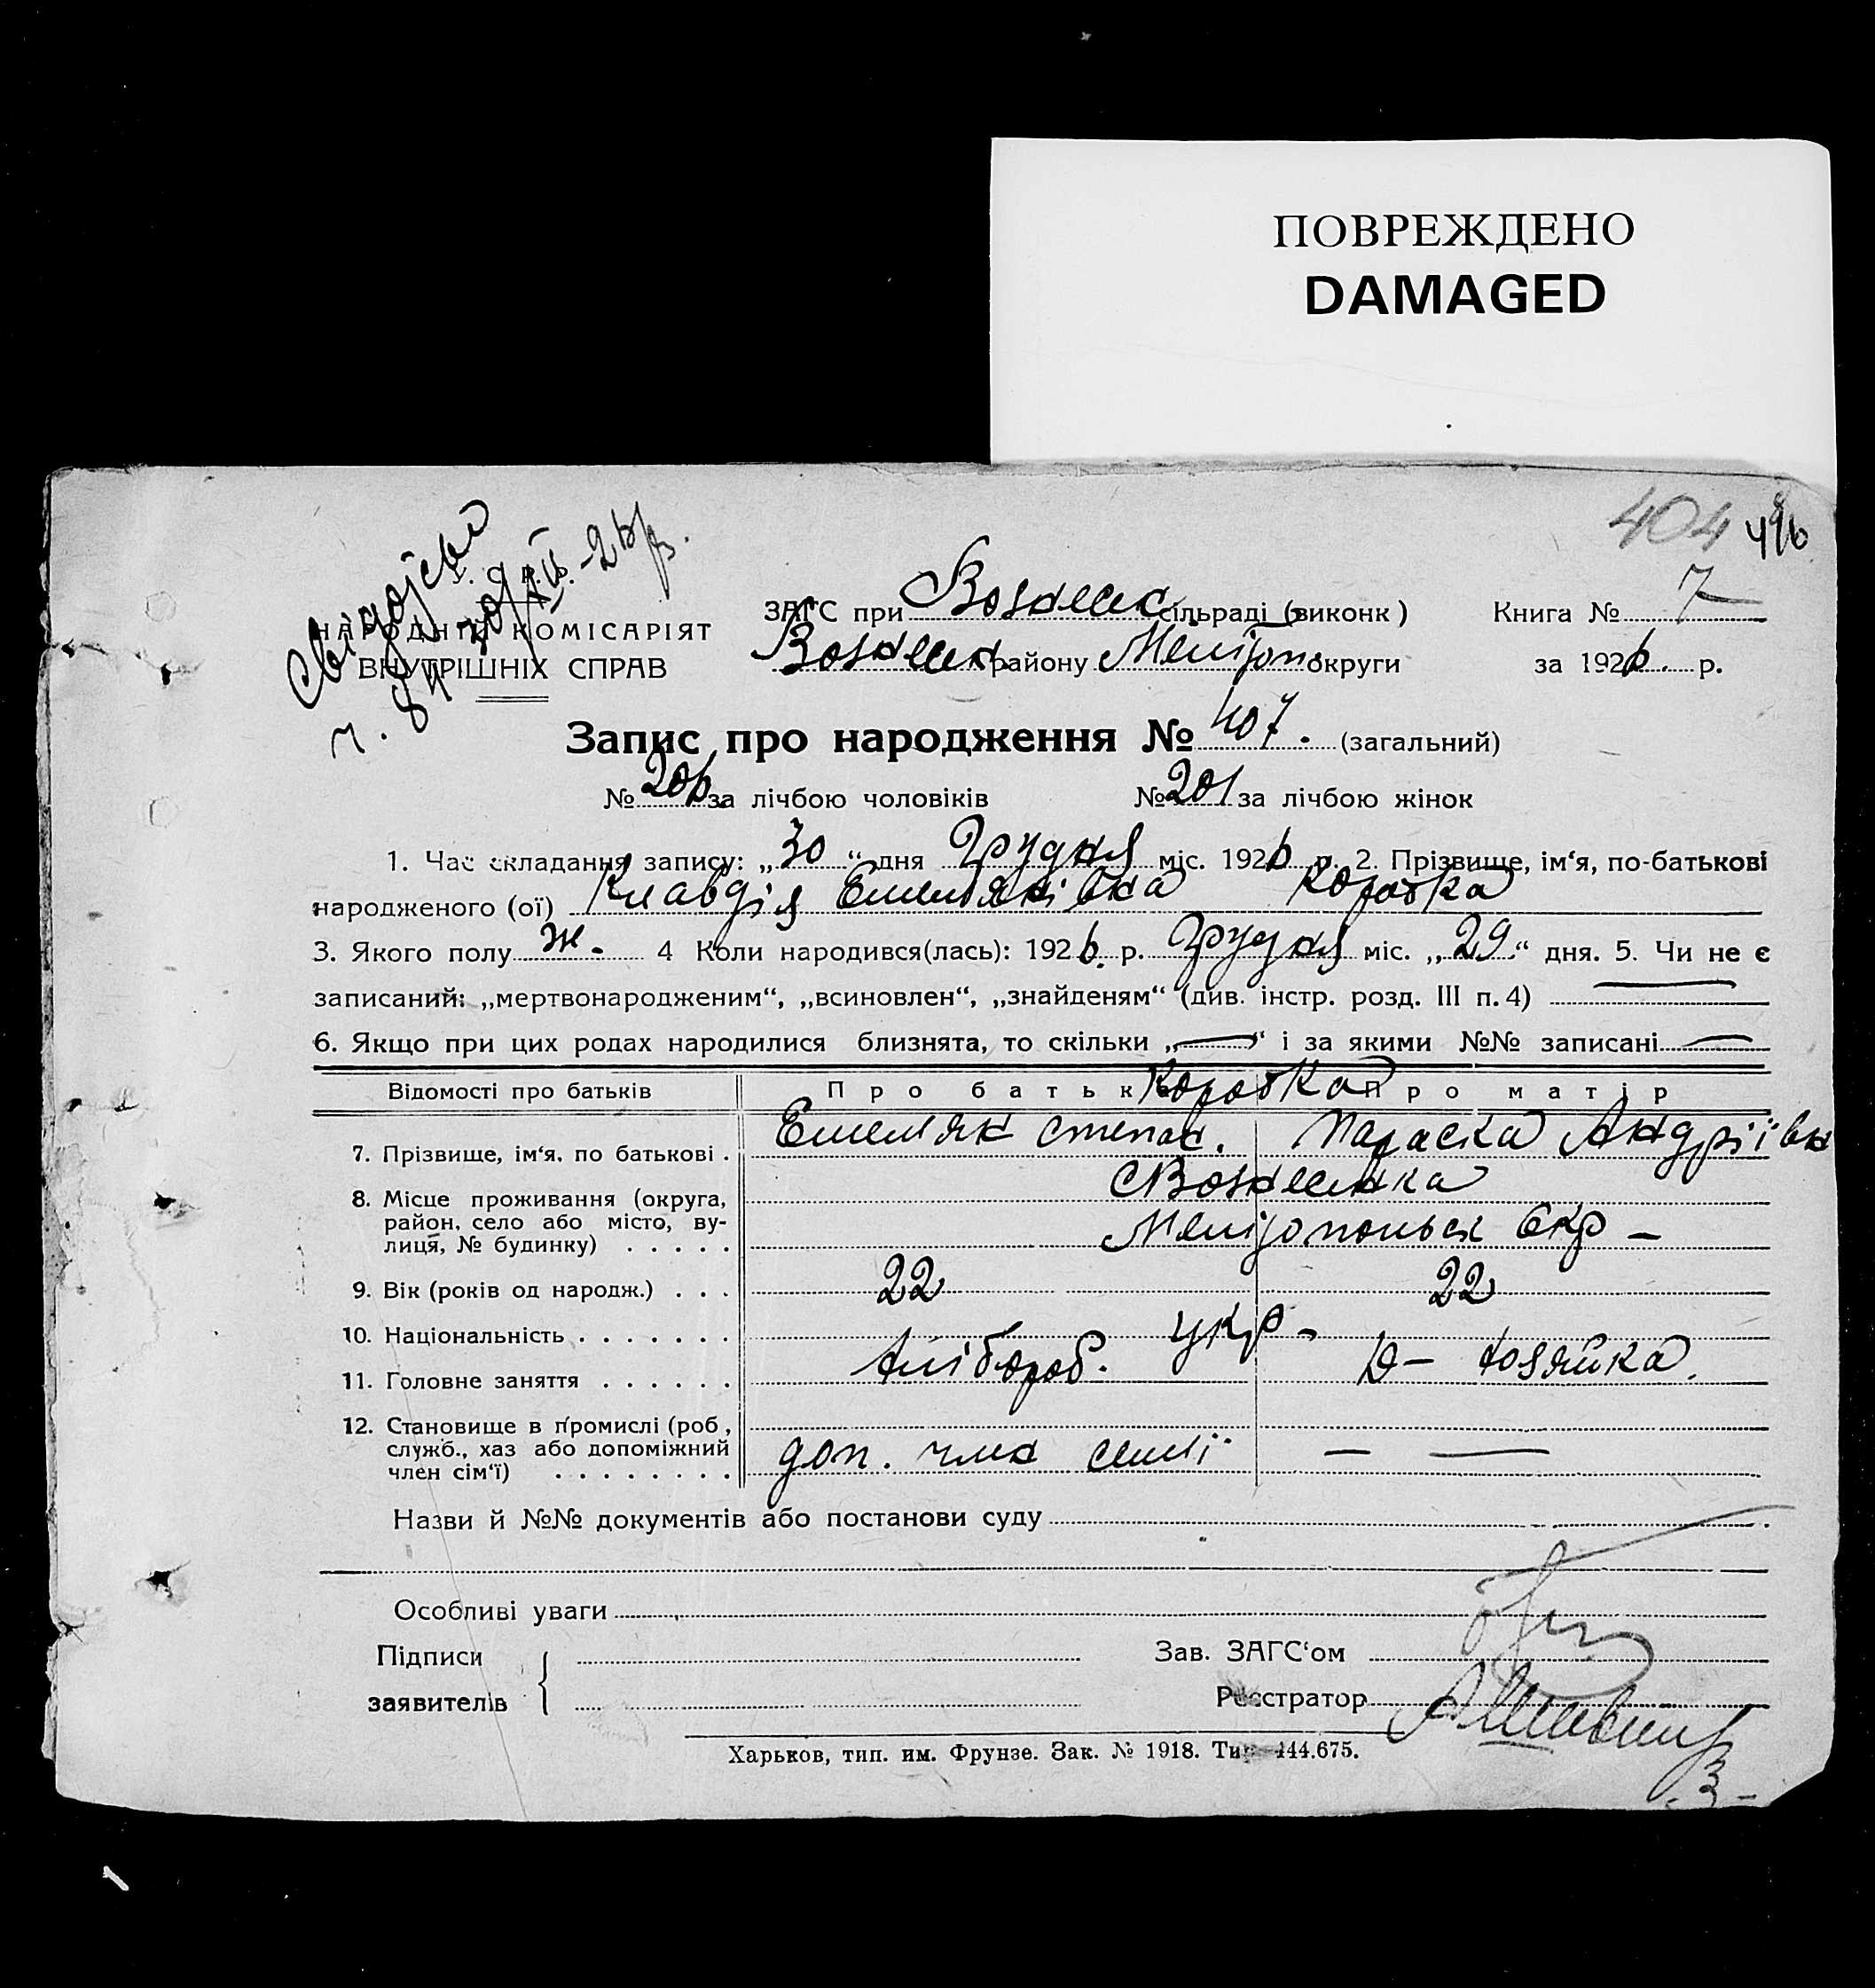 ПОВРЕЖДЕНО
DAMAGED
404 496
У. С. Р. Р.
НАРОДНІЙ КОМІСАРІЯТ
ВНУТРІШНІХ СПРАВ
ч. 84 30/XII-26 р.
ЗАГС при Вознесен сільраді (виконк) Книга № 7
Вознесен району Мелітоп. округи за 1926. р.
Запис про народження № 407. (загальний)
№ 206 за лічбою чоловіків № 201 за лічбою жінок
1. Час складання запису: „30“ дня Грудня міс. 1926 р. 2. Прізвище, ім‘я, по-батькові
народженого (ої) Клавдія Емельянівна Коротка
3. Якого полу ж. 4 Коли народився(лась): 1926. р. Грудня міс. „29.“ дня. 5. Чи не є
записаний: „мертвонародженим“, „всиновлен“, „знайденям“ (див. інстр. розд. III п. 4) —
6. Якщо при цих родах народилися близнята, то скільки „—“ і за якими №№ записані —
Відомості про батьків Про батька Про матір
Коротка
7. Прізвище, ім‘я, по батькові . Емельян степан. Параска Андріївн
8. Місце проживання (округа, район, село або місто, вулиця, № будинку) . . . . . с Вознесенка
Мелітопольск Окр —
9. Вік (років од народж.) . . . 22 22
10. Національність . . . . . . . укр —
11. Головне заняття . . . . . . хлібороб. Д— хозяйка.
12. Становище в промислі (роб, служб., хаз або допоміжний член сім‘ї) . . . . . . . . доп. член семї — —
Назви й №№ документів або постанови суду
Особливі уваги
Підписи
заявителів
Зав. ЗАГС‘ом
Реєстратор
Харьков, тип. им. Фрунзе. Зак. № 1918. Тир. 444.675.